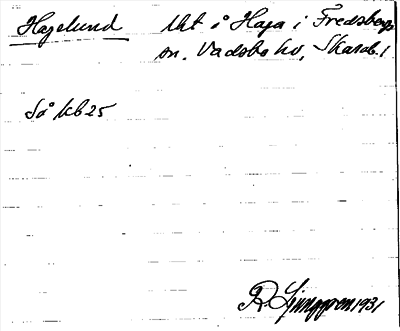 Hagelund Uht i Haga i Fredsbergs
sn. Vadsbo hd, Skarab. l
Så kb 25
R Ljunggren 1931